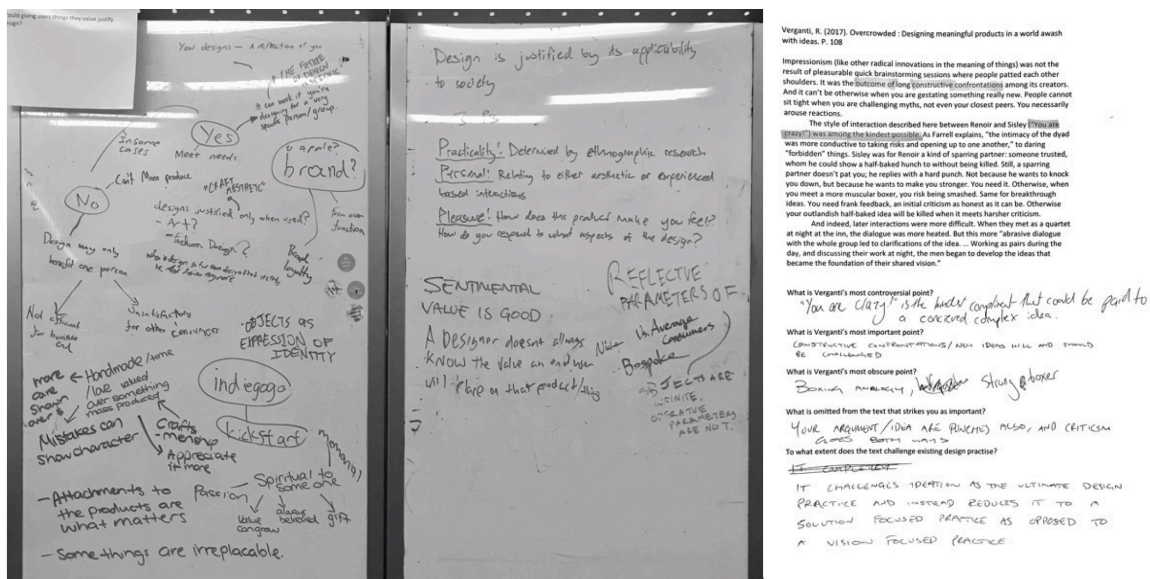 ould giving users things they value justify
Your designs — A reflection of you
THE FUTURE OF DESIGN
it can work if you're
designing for a very
specific person/group.
In some
cases
Yes
Meet needs
apple?
brand?
Can't Mass produce
"CRAFT AESTHETIC"
No
designs justified only when used?
- Art?
- Fashion Design?
form over
function
Brand
loyalty
Design may only
benefit one person
Not efficient
for business
Unsatisfactory
for other consumers
• OBJECTS AS
EXPRESSION OF
IDENTITY
more
care
shown
over
Handmade/some
/love valued
over something
mass produced
indiegogo
kickstart
Mistakes can
show character
Crafts
- menship
Appreciate
it more
memorial
Spiritual to
someone
Passion
Value
can grow
always
believed
gift
- Attachments to
the products are
what matters
- Some things are irreplacable.
Design is justified by its applicability
to society
3 P's
Practicality! Determined by ethnographic research
Personal! Relating to either aesthetic or experienced
based interactions
Pleasure! How does the product make you feel?
How do you respond to what aspects of the design?
SENTIMENTAL
VALUE IS GOOD
A Designer doesn't always
KNOW the value an end user
will place on that product/thing
REFLECTIVE
PARAMETERS OF
Niche Vs. Average
Consumers
Bespoke
OBJECTS ARE
INFINITE.
OPERATIVE
PARAMETERS
ARE NOT.
Verganti, R. (2017). Overcrowded : Designing meaningful products in a world awash
with ideas. P. 108
Impressionism (like other radical innovations in the meaning of things) was not the
result of pleasurable quick brainstorming sessions where people patted each other
shoulders. It was the outcome of long constructive confrontations among its creators.
And it can't be otherwise when you are gestating something really new. People cannot
sit tight when you are challenging myths, not even your closest peers. You necessarily
arouse reactions.
The style of interaction described here between Renoir and Sisley ("You are
crazy!") was among the kindest possible. As Farrell explains, "the intimacy of the dyad
was more conductive to taking risks and opening up to one another," to daring
"forbidden" things. Sisley was for Renoir a kind of sparring partner: someone trusted,
whom he could show a half-baked hunch to without being killed. Still, a sparring
partner doesn't pat you; he replies with a hard punch. Not because he wants to knock
you down, but because he wants to make you stronger. You need it. Otherwise, when
you meet a more muscular boxer, you risk being smashed. Same for breakthrough
ideas. You need frank feedback, an initial criticism as honest as it can be. Otherwise
your outlandish half-baked idea will be killed when it meets harsher criticism.
And indeed, later interactions were more difficult. When they met as a quartet
at night at the inn, the dialogue was more heated. But this more "abrasive dialogue
with the whole group led to clarifications of the idea. ... Working as pairs during the
day, and discussing their work at night, the men began to develop the ideas that
became the foundation of their shared vision."
What is Verganti's most controversial point?
"You are crazy!" is the kindest compliment that could be paid to
a concieved complex idea.
What is Verganti's most important point?
CONSTRUCTIVE CONFRONTATIONS/NEW IDEAS WILL AND SHOULD
BE CHALLENGED
What is Verganti's most obscure point?
BOXING ANALOGY, strong boxer
What is omitted from the text that strikes you as important?
YOUR ARGUMENT/IDEA ARE PUNCHES ALSO, AND CRITICISM
GOES BOTH WAYS
To what extent does the text challenge existing design practise?
IT COMPLETELY
IT CHALLENGES IDEATION AS THE ULTIMATE DESIGN
PRACTICE AND INSTEAD REDUCES IT TO A
SOLUTION FOCUSED PRACTICE AS OPPOSED TO
A VISION FOCUSED PRACTICE